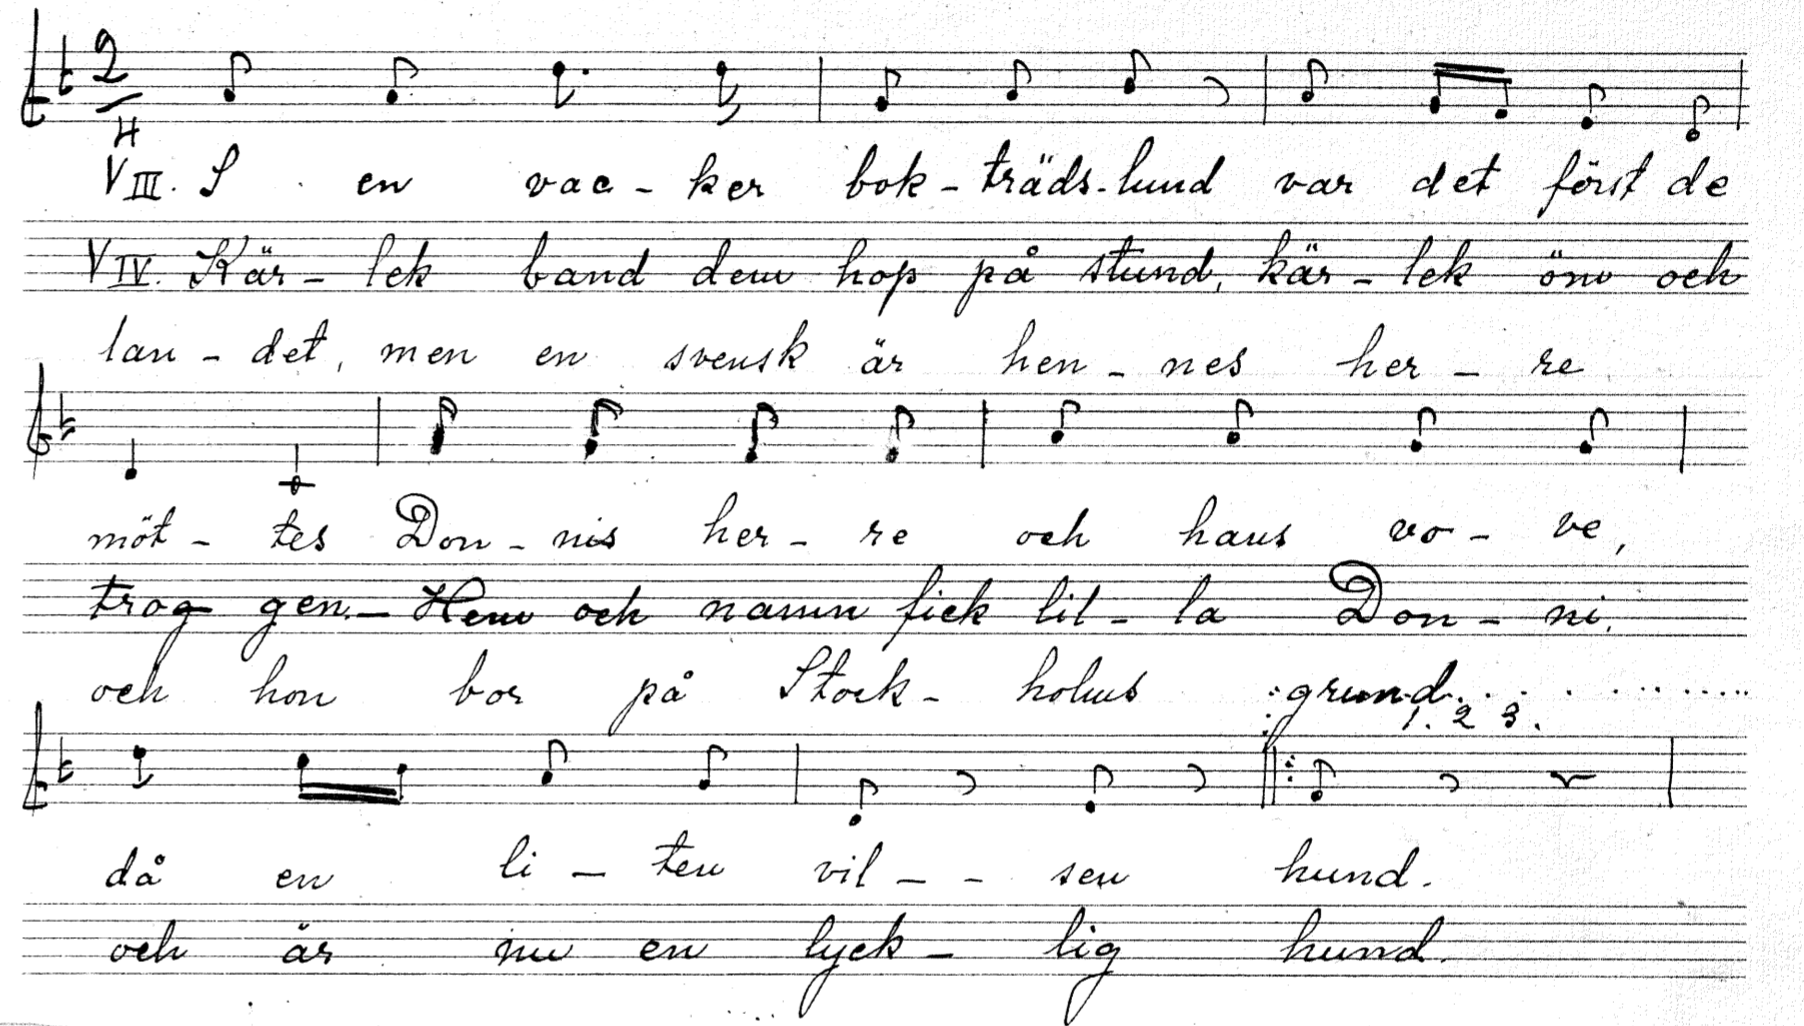 2
4
VIII. I en vac - ker bok - träds - lund var det först de
VIV. Kär - lek band dem hop på stund, kär - lek öm och
lan - det, men en svensk är hen - nes her - re
möt - tes Don - nis her - re och hans vo - ve,
trog gen. - Hem och namn fick lil - la Don - ni.
och hon bor på Stock - holms grund..........
1. 2 3.
då en li - ten vil - - sen hund.
och är nu en lyck - lig hund.